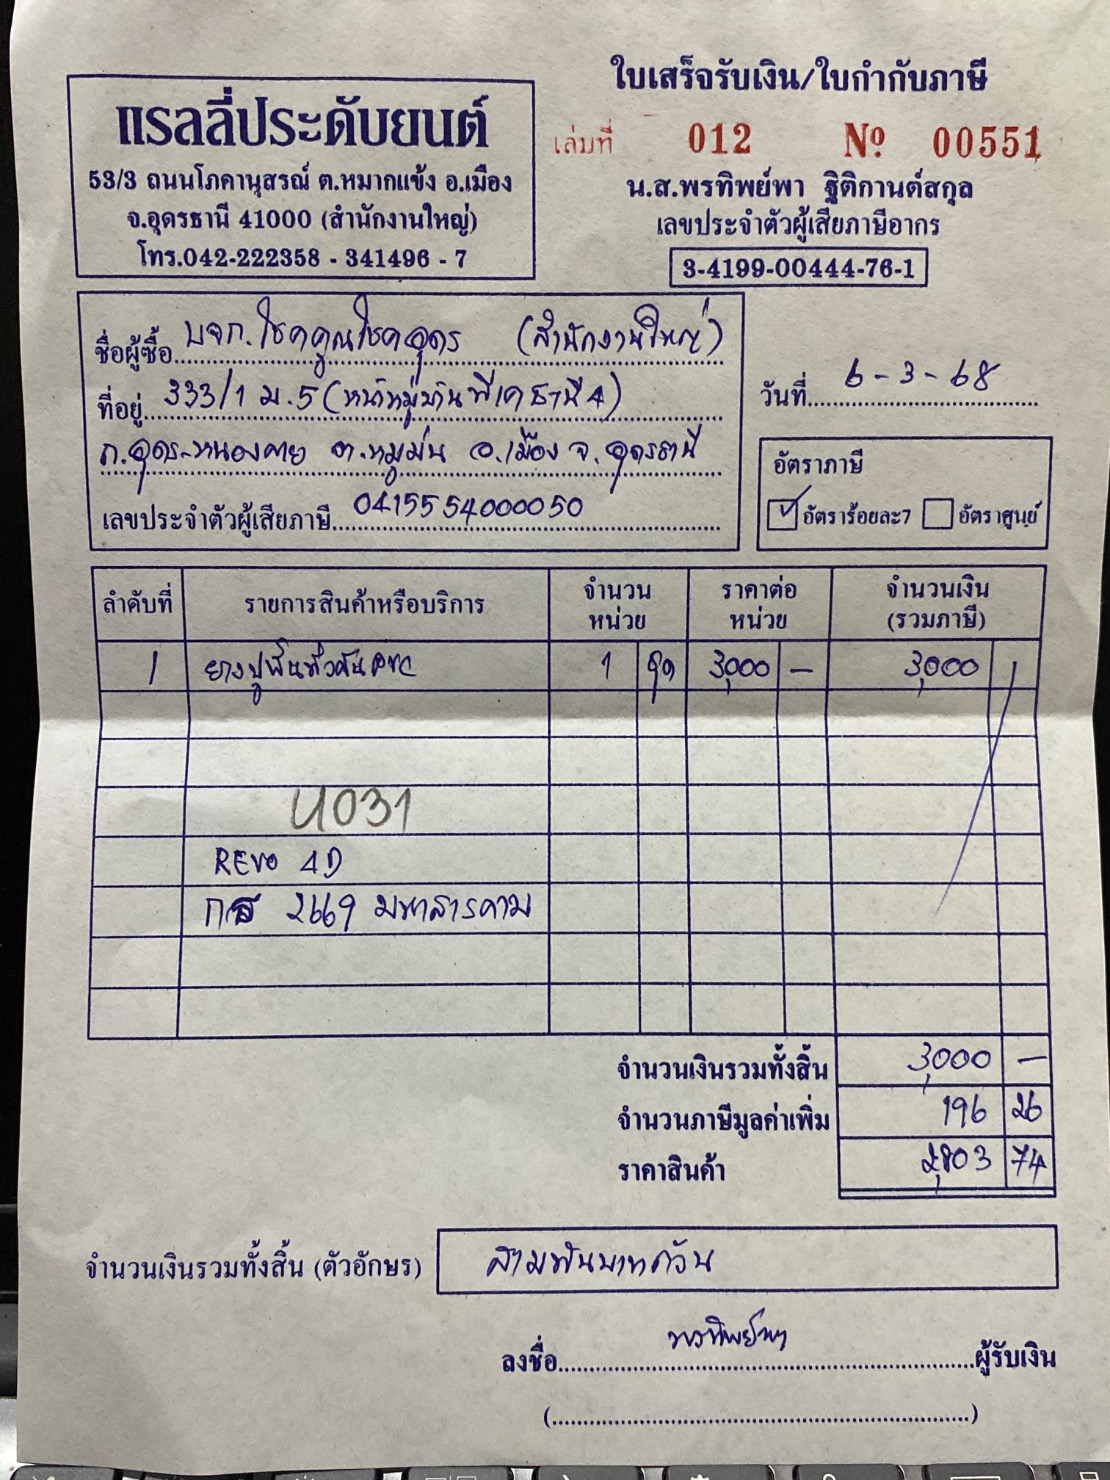 ใบเสร็จรับเงิน/ใบกำกับภาษี
แรลลี่ประดับยนต์
53/3 ถนนโภคานุสรณ์ ต.หมากแข้ง อ.เมือง
จ.อุดรธานี 41000 (สำนักงานใหญ่)
โทร.042-222358 - 341496 - 7
เล่มที่ 012 № 00551
น.ส.พรทิพย์พา ฐิติกานต์สกุล
เลขประจำตัวผู้เสียภาษีอากร
3-4199-00444-76-1
ชื่อผู้ซื้อ บจก.โชคคูณโชคอุดร (สำนักงานใหญ่)
ที่อยู่ 333/1 ม.5 (หน้าหมู่บ้านพีเคธานี 4)
ถ.อุดร-หนองคาย ต.หมูม่น อ.เมือง จ.อุดรธานี
เลขประจำตัวผู้เสียภาษี 0415554000050
วันที่ 6-3-68
อัตราภาษี
อัตราร้อยละ7 อัตราศูนย์
ลำดับที่ รายการสินค้าหรือบริการ จำนวนหน่วย ราคาต่อหน่วย จำนวนเงิน (รวมภาษี)
1 ยางปูพื้นทั้งคัน PVC 1 ชุด 3,000 — 3,000
U031
REVO 4D
2669 มหาสารคาม
จำนวนเงินรวมทั้งสิ้น 3,000 —
จำนวนภาษีมูลค่าเพิ่ม 196 26
ราคาสินค้า 2,803 74
จำนวนเงินรวมทั้งสิ้น (ตัวอักษร) สามพันบาทถ้วน
ลงชื่อ พรทิพย์พา ผู้รับเงิน